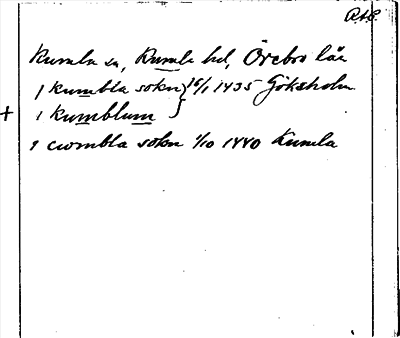 RAP.
Kumla sn, Kumla hd, Örebro län
i kumbla sokn } 16/1 1435 Göksholm
+ i kumblum
i cwmbla sokn 1/10 1440 Kumla